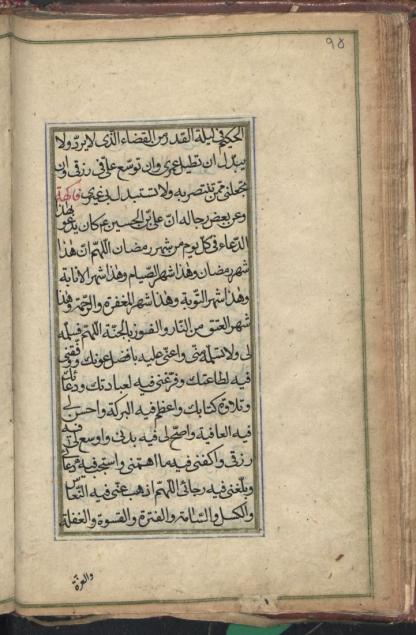 ٩٨
الحكيم في ليلة القدر من القضاء الذى لا يردّ ولا
يبدّل ان تطيل عمرى وان توسّع علىّ فى رزقى وان
تجعلنى ممّن تنتصر به ولا تستبدل بى غيرى
وعن بعض رجاله انّ علىّ بن الحسين ع م كان يدعو بهذا
الدّعاء فى كلّ يوم من شهر رمضان اللهمّ انّ هذا
شهر رمضان وهذا شهر الصّيام وهذا شهر الانابة
وهذا شهر التّوبة وهذا شهر المغفرة والرّحمة وهذا
شهر العتق من النّار والفوز بالجنّة اللهمّ فسلّمه
لى وتسلّمه منّى واعنّى عليه بافضل عونك ووفّقنى
فيه لطاعتك وفرّغنى فيه لعبادتك ودعائك
وتلاوة كتابك واعظم لى فيه البركة واحسن لى
فيه العافية واصحّ لى فيه بدنى واوسع لى فيه
رزقى واكفنى فيه ما اهمّنى واستجب فيه دعائى
وبلّغنى فيه رجائى اللهمّ اذهب عنّى فيه النّعاس
والكسل والسّامة والفترة والقسوة والغفلة
والغرّة